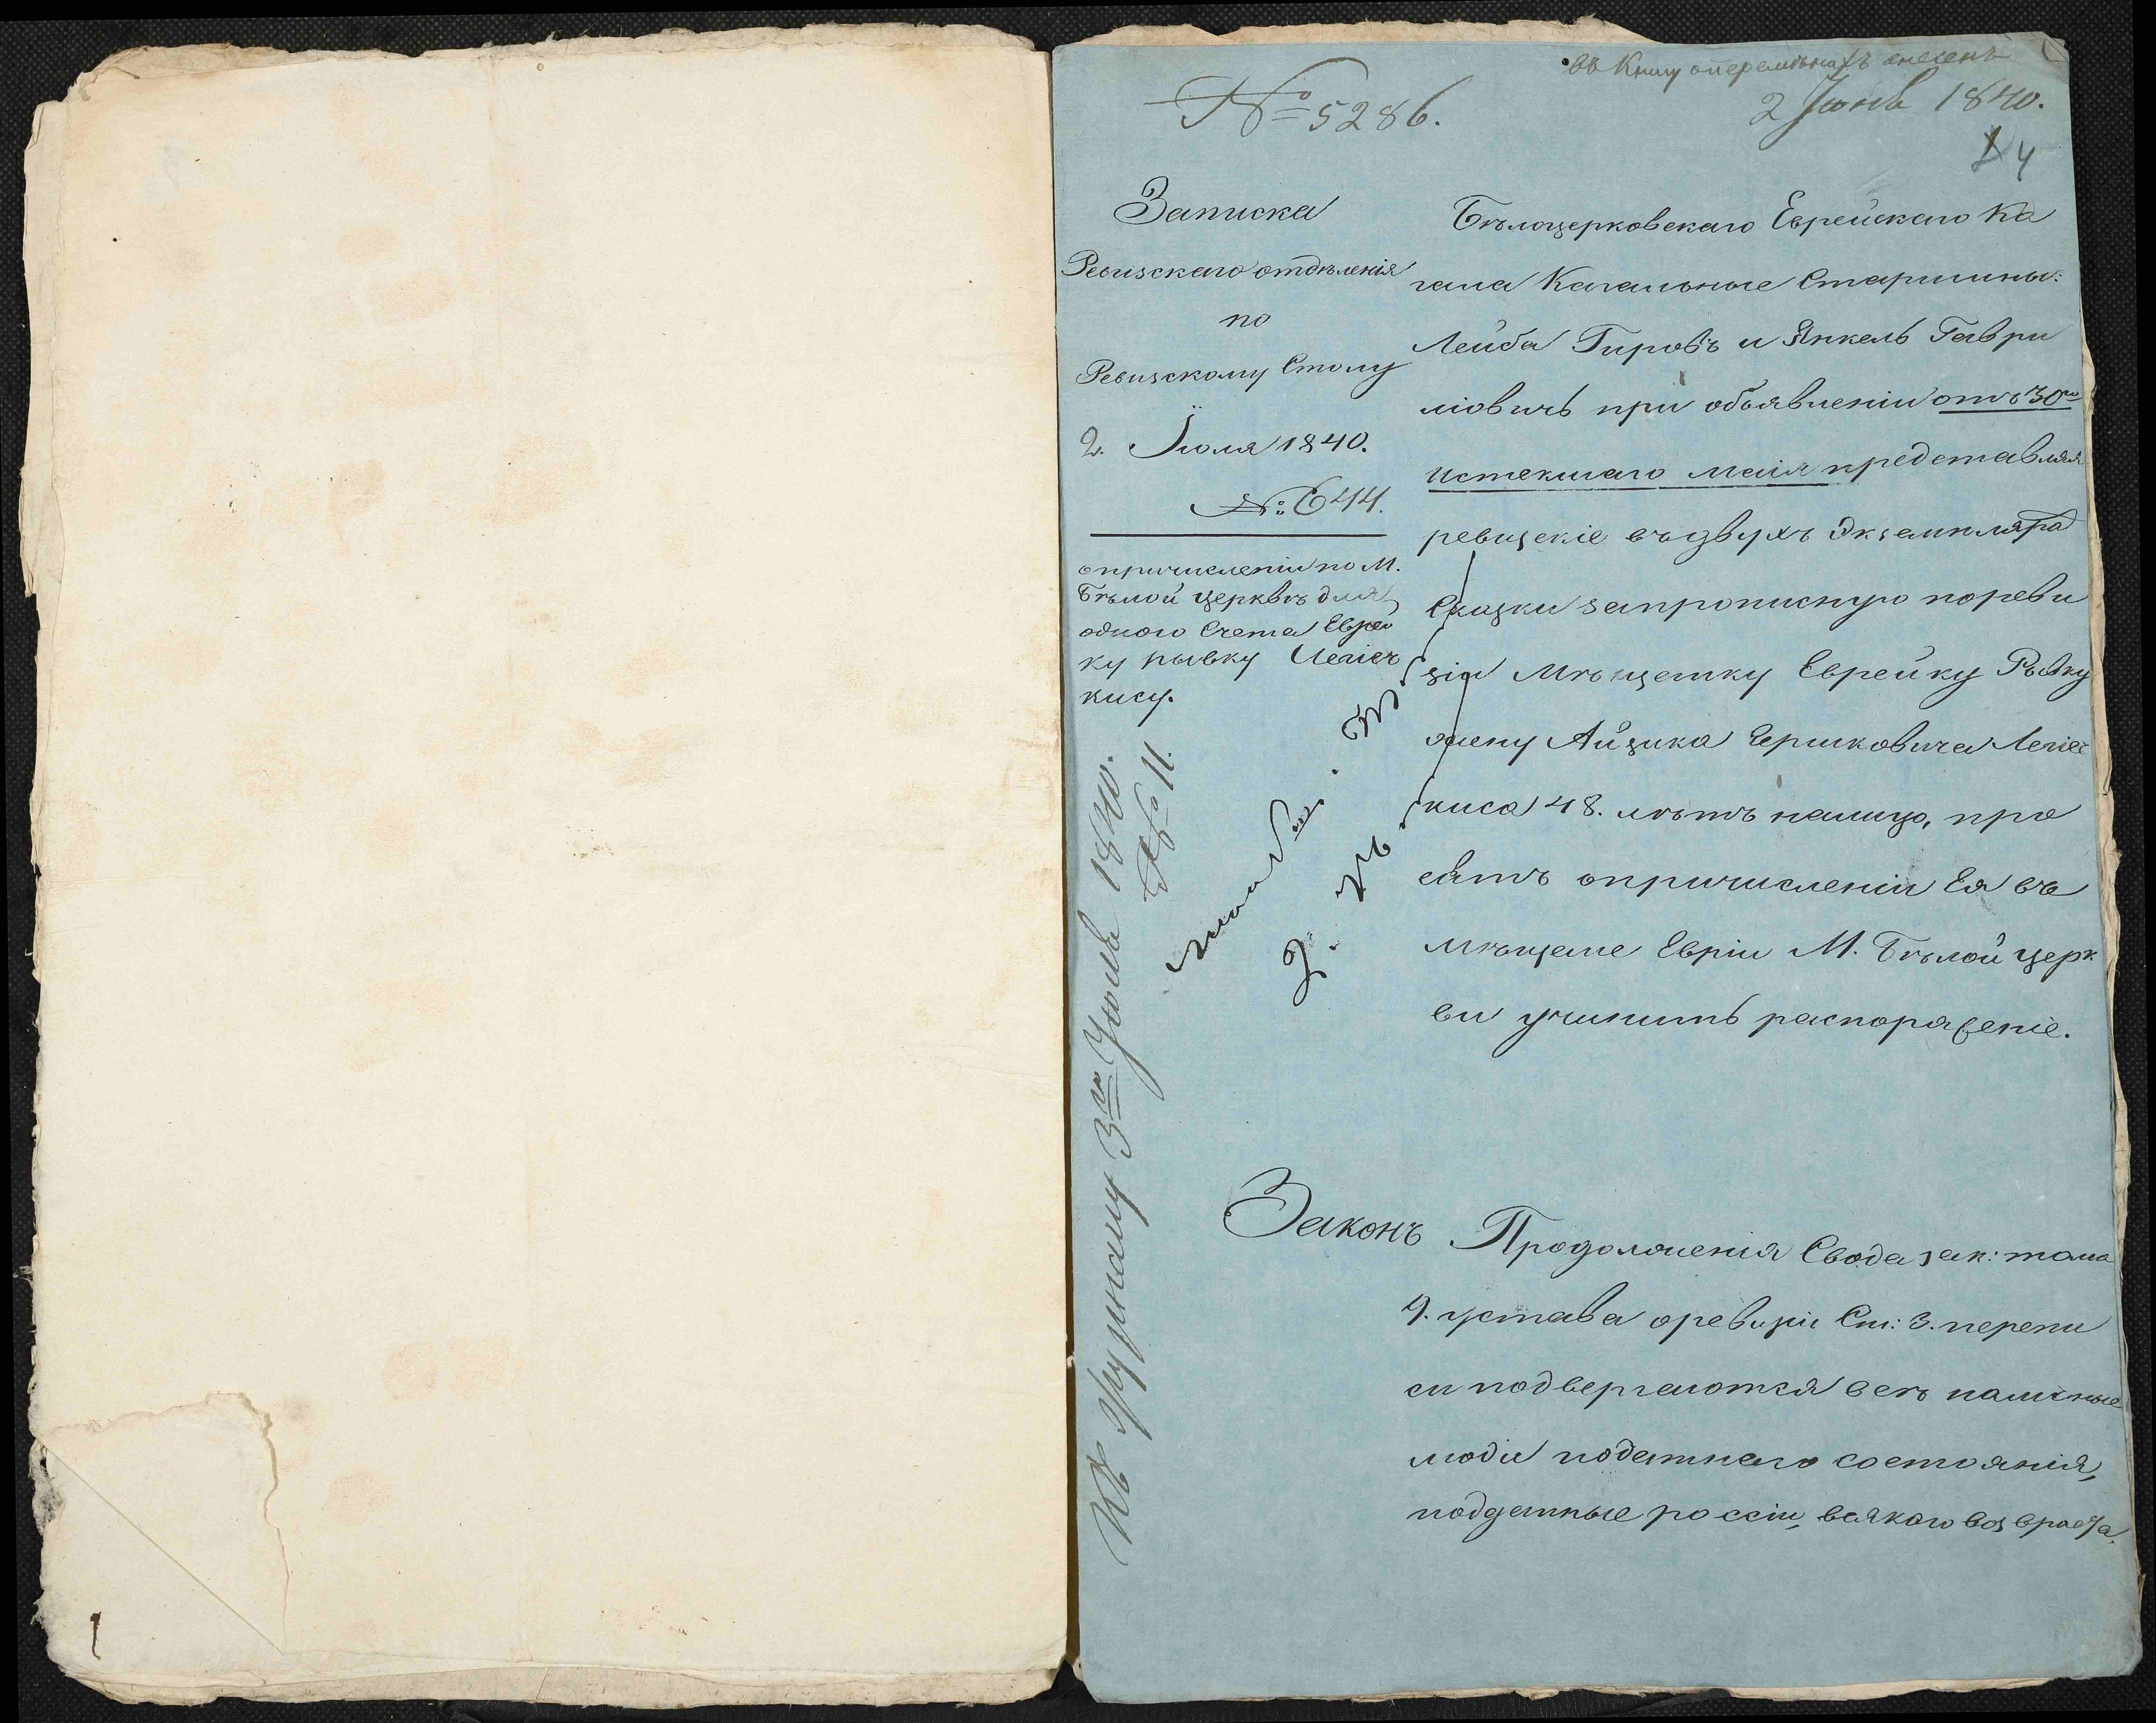 въ книгу
2 Іюнь 1840.
№ 5286.
4
Записка
Ревизскаго отдѣленія
по
Ревизскому Столу
2. Іюля 1840.
№: 644.
о причисленіи по М.
Бѣлой церквѣ для
одного Счета Еврей
ку рывку
кису.
Бѣлоцерковскаго Еврейскаго Ка
гала Кагальные Старшины:
Лейба Гировъ и Янкель Гаври
ліовичь при объявленіи отъ 30го
истекшаго маія представляя
ревизскіе въ двухъ Экземпляра
Сказки запрописную пореви
зіи Мѣщанку Еврейку Рывку
жену Айзика Гершковича
киса 48. лѣтъ налицо, про
сятъ о причисленіи Ея въ
мѣщане Евріи М. Бѣлой церк
ви учинить распоряженіе.
Законъ
Продолженія Свода зак: тома
9. устава о ревизіи Ст: 3. перепи
си подвергаются всѣ наличные
люди податнаго состоянія,
подданные россіи, всякаго возвраста.
Къ 3го Іюля 1840.
№ 11.